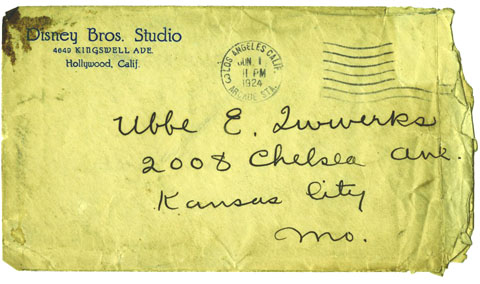 Disney Bros. Studio
4649 KINGSWELL AVE.
Hollywood, Calif.
LOS ANGELES, CALIF.
JUN. 1
11 PM
1924
ARCADE STA.
Ubbe E. Iwwerks
2008 Chelsea Ave.
Kansas City
Mo.